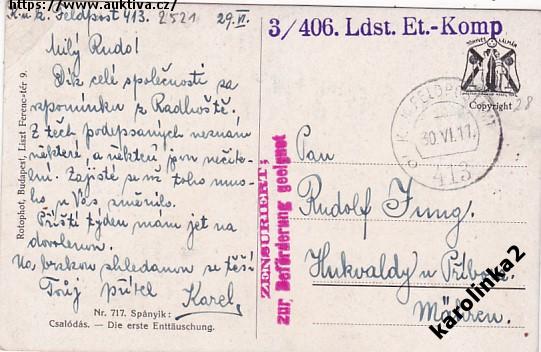 https://www.auktiva.cz/
K.u.k. Feldpost 413. 2521 29./VI.
Milý Rudo!
Dík celé společnosti za
vzpomínku z Radhoště.
Z těch podepsaných neznám
některé, a někteří jsou nečitel-
ní. Zajisté se už toho mno-
ho u Vás změnilo.
Příští týden mám jet na
dovolenou.
Na brzkou shledanou se těší
Tvůj přítel Karel
Nr. 717. Spányik:
Csalódás. — Die erste Enttäuschung.
Rotophot, Budapest, Liszt Ferenc-tér 9.
3/406. Ldst. Et.-Komp
Copyright
28
K.u.K. FELDPOSTAMT
30.VI.17.
413
ZENSURIERT,
zur Beförderung geeignet
Pan
Rudolf Jung.
Hukvaldy u Příbora
Mähren.
karolinka2